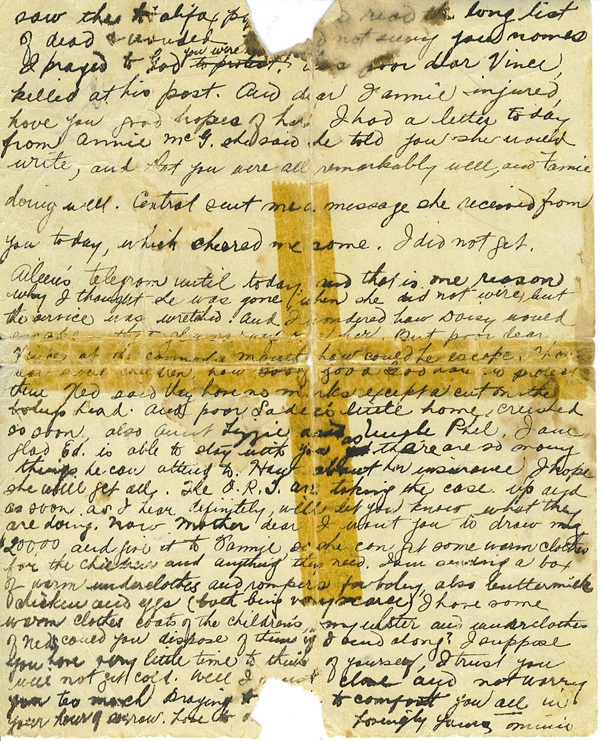 saw the Halifax I read the long list
of dead & not seeing you names
I prayed to God you were to protect. poor dear Vince,
killed at his post. And dear Fannie injured,
have you good hopes of her. I had a letter today
from Annie McG. she said he told you she would
write, and that you were all remarkably well, and Fannie
doing well. Central sent me a message she received from
you today, which cheered me some. I did not get.
Aileen's telegram until today, and that is one reason
why I thought he was gone (when she did not wire, but
the service was wretched. And I wondered how Daisy would
But poor dear
at the how could he escape.
children, how good God was to protect
them Ned said they have no marks except a cut on the
baby's head. And poor little home, crushed
so soon. also Aunt Lizzie and Uncle Phil, I am
glad Ed. is able to stay with you as there are so many
things he can attend to. How about her insurance, I hope
she will get all. The O.R.T. are taking the case up and
as soon as I hear definitely, will let you know what they
are doing. Now Mother dear I want you to draw my
$20000 and give it to so she can get some warm clothes
for the children and anything they need. I am sending a box
of warm underclothes and rompers for baby, also buttermilk
chicken and eggs (both being very scarce) I have some
warm clothes coats of the childrens, my ulster and underclothes
of Neds could you dispose of them if I send along? I suppose
you have very little time to think of yourself, I trust you
will not get cold. Well I must close and not worry
you too much Praying to comfort you all in
your hour of sorrow. Love to Lovingly yours Minnie